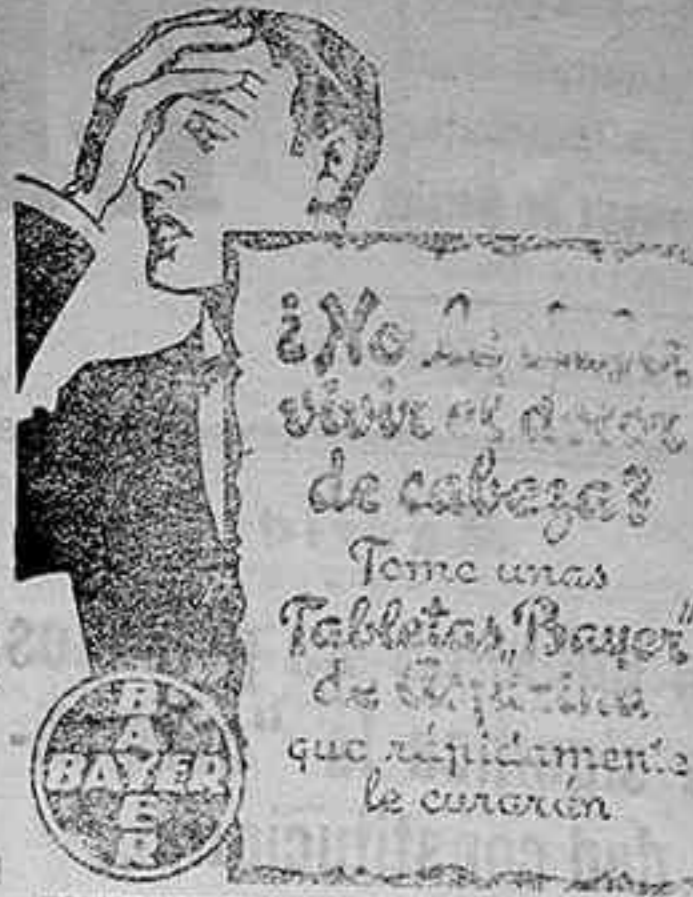 ¿No
vivir el dolor
de cabeza?
Tome unas
Tabletas „Bayer”
de Aspirina
que rápidamente
le curarán
BAYER
BAYER